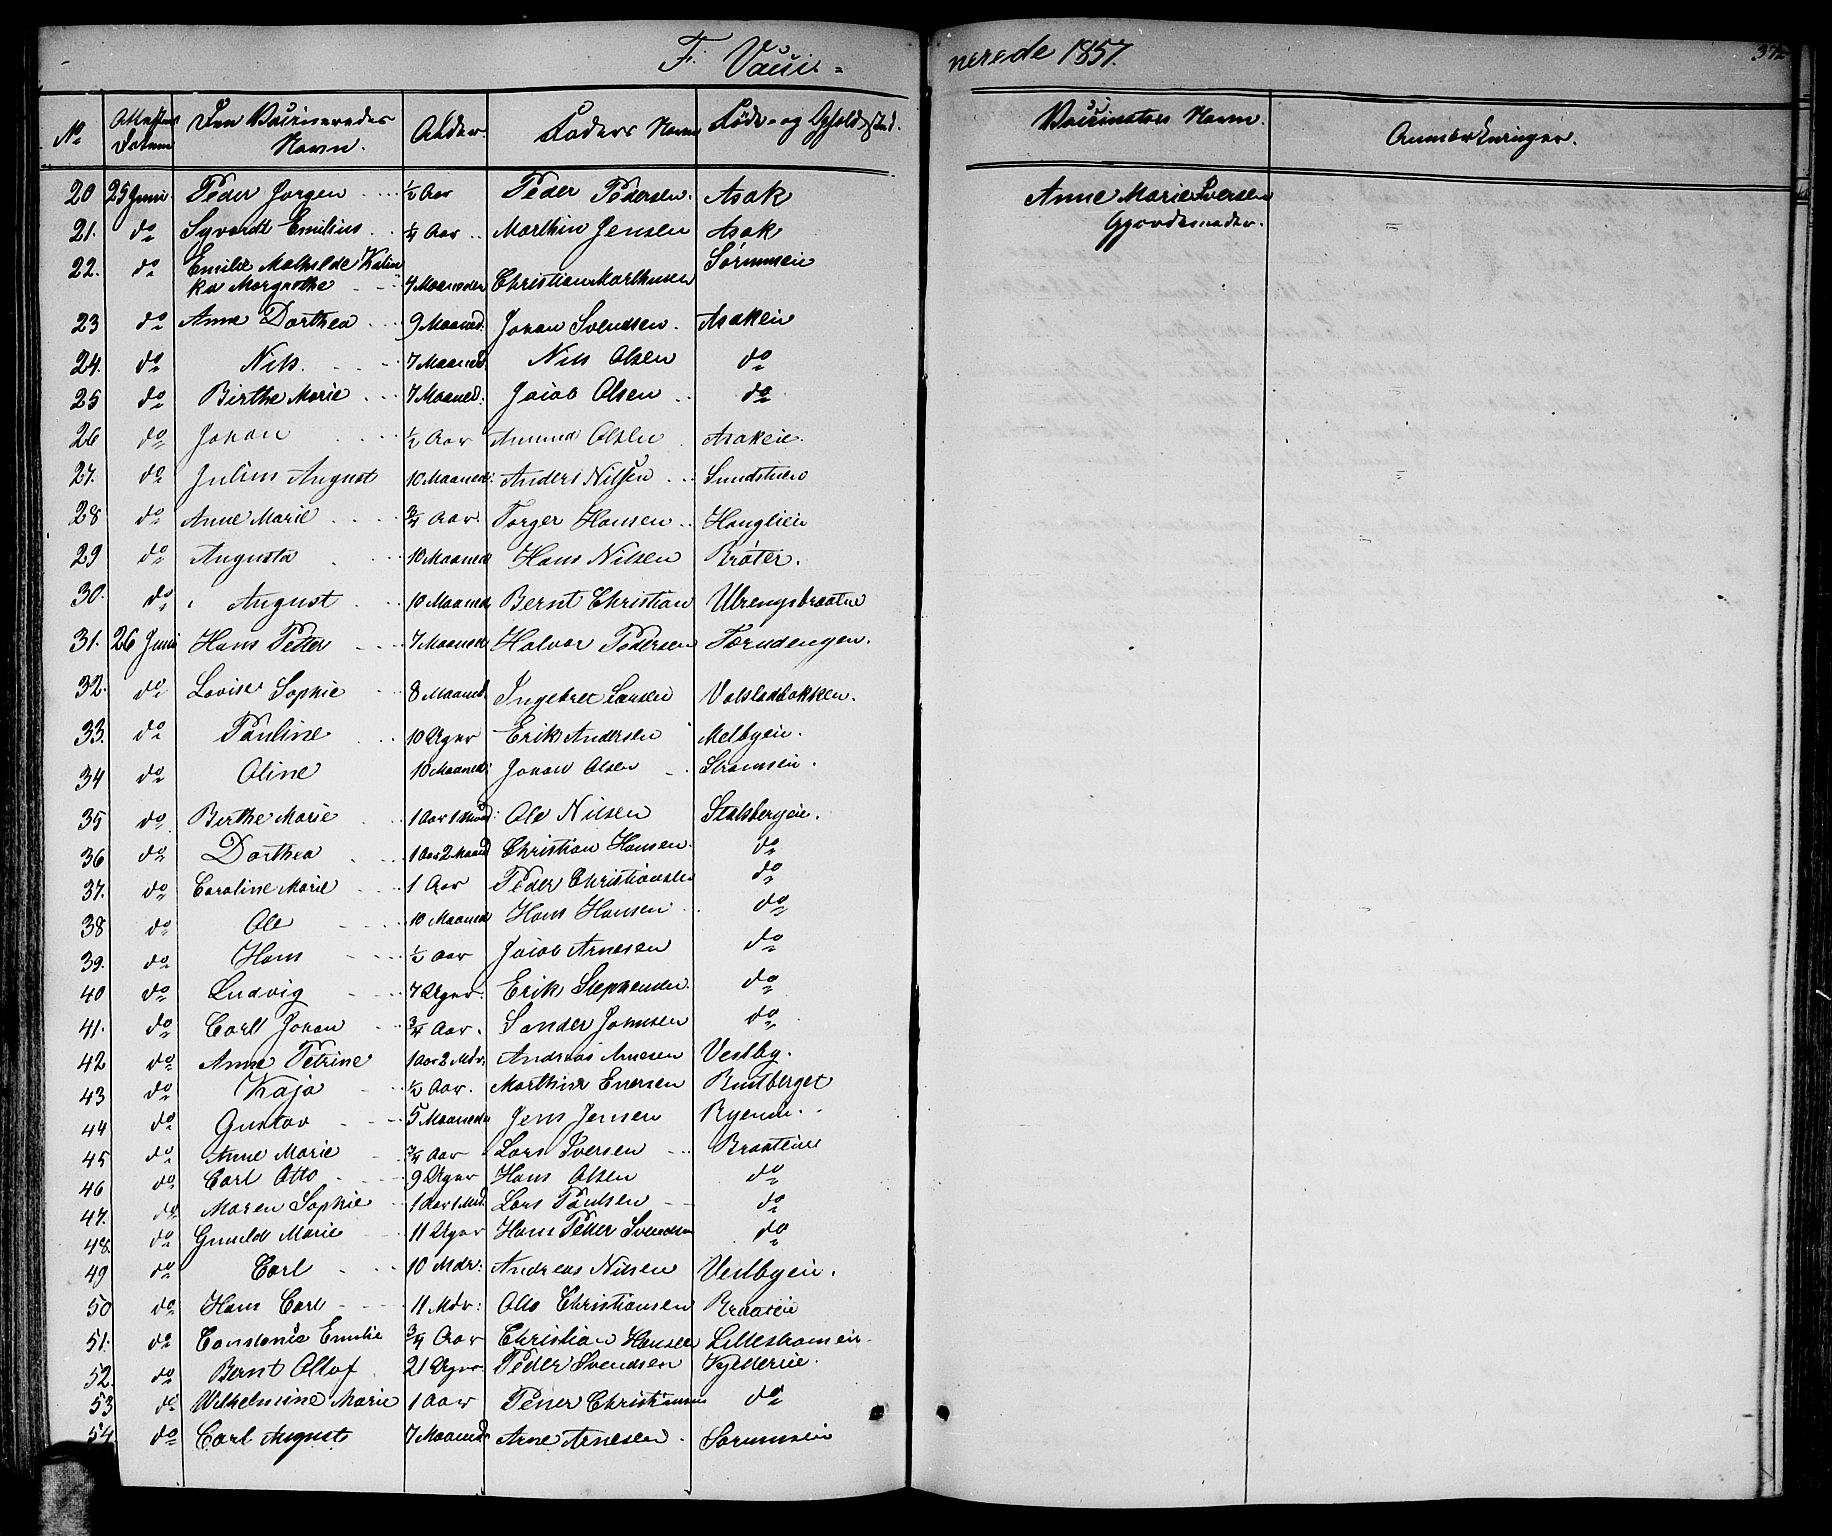 F. Vacci- nerede 1857. 372
No | Attestens Datum | Den Vaccineredes Navn. | Alder. | Faders Navn | Føde- og Opholdssted. | Vaccinators Navn. | Anmærkninger.
20 | 25 Juni. | Peder Jørgen | ½ Aar | Peder Pedersen. | Asak | Anne Marie Iversen
Gjordemoder.
21. | do | Syverdt Emilius | ¾ Aar | Marthin Jensen | Asak
22. | do | Emilie Mathilde Kalin
ka Margrethe | 4 Maaneder | Christian Marthinsen | Sørumeie
23 | do | Anne Dorthea | 9 Maaned. | Johan Svendsen. | Asakeie
24. | do | Nils. | 7 Maaned. | Nils Olsen | do
25 | do | Birthe Marie | 7 Maaned. | Jacob Olsen | do
26 | do | Johan | ½ Aar | Amund Olsen | Asakeie.
27. | do | Julius August | 10 Maaned. | Anders Nilsen | Sundstuen
28 | do | Anne Marie | ¾ Aar. | Torger Hansen | Houglien
29 | do | Augusta | 10 Maaned | Hans Nilsen | Brøter.
30. | do | August | 10 Maaned. | Bernt Christian | Ulrengsbraaten
31. | 26 Juni | Hans Petter | 7 Maaned | Halvor Pedersen | Tærudengen.
32. | do | Lovise Sophie | 8 Maaned. | Ingebret Larsen | Volsladbakken.
33. | do | Pauline | 10 Uger | Erik Andersen | Melbyeie.
34 | do | Oline | 10 Maaned. | Johan Olsen | Strømseie.
35 | do | Birthe Marie | 1 Aar 1 Maaned. | Ole Nilsen | Stalsbergeie.
36 | do | Dorthea | 1 Aar 2 Maaned | Christian Hansen. | do
37. | do | Caroline Marie | 1 Aar | Peder Christiansen | do
38 | do | Ole | 10 Maaned | Hans Hansen | do
39. | do | Hans | ½ Aar | Jacob Arnesen | do
40 | do | Ludvig | 7 Uger. | Erik Stephensen. | do
41. | do | Carll Johan | ¾ Aar. | Sander Johnsen | do
42 | do | Anne Petrine | 1 Aar 2 Mdr. | Andreas Arnesen | Vestby.
43 | do | Kaja | ½ Aar. | Marthin Enersen | Bustberget
44 | do | Gustav | 5 Maaneder | Jens Jensen | Ryenei.
45 | do | Anne Marie | ¾ Aar | Lars Iversen | Braateeie
46 | do | Carl Otto | 9 Uger | Hans Olsen | do
47. | do | Maren Sophie | 1 Aar 1 Md. | Lars Paulsen | do
48. | do | Gunild Marie | 11 Uger | Hans Peter Svendsen | do
49 | do | Carl | 10 Mdr. | Andreas Nilsen | Vestbyeie.
50 | do | Hans Carl | 11 Mdr: | Otto Christiansen | Braateie
51. | do | Constance Emilie | ¾ Aar | Christian Hansen | Lillestrømeie
52. | do | Bernt Ollaf | 21 Uger. | Peder Svendsen
53 | do | Wilhelmine Marie | 1 Aar | Peder Christiansen | do
54 | do | Carl August | 7 Maaned. | Arne Arnesen. | Sørumseie